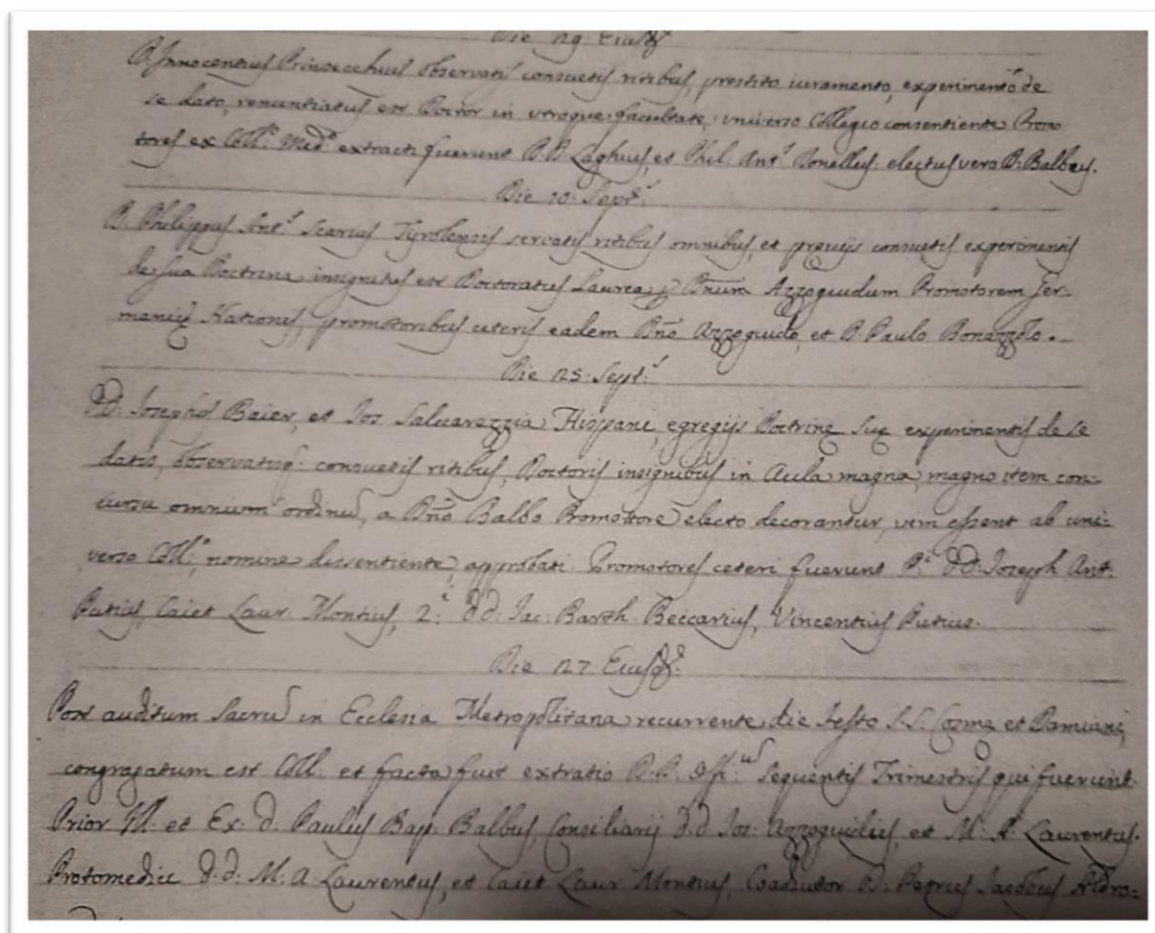 Die 29 Eiusd.
D. Innocentius Prinsecchius observatis consuetis ritibus, prestito iuramento, experimento de
se dato, renuntiatus est Doctor in utroque facultate, universo Collegio consentiente Promo
tores ex Coll.º Med.º extracti fuerunt D.D. Laghius, et Phil. Ant.s Donellus: electus vero D. Balbus.
Die 10. Sept.s
D. Philippus Ant.s Scarius Tyrolensis servatis ritibus omnibus, et previjs consuetis experimentis
de sua Doctrina insignitus est Doctoratus Laurea, Dnum Azzoguidum Promotorem Ger-
manicę Nationis, promotoribus ceteris eadem Dño Azzoguido, et D. Paulo Bonazzolo.
Die 25. Sept.s
DD. Josephus Baier, et Jos Salvarezzia Hispani, egregijs Doctrinę suę experimentis de se
datis, observatisq. consuetis ritibus, Doctoris insignibus in Aula magna, magno item con-
cursu omnium ordinũ, a Dño Balbo Promottore electo decorantur, essent ab uni-
verso Coll.º, nomine dissentiente, approbati. Promotores ceteri fuerunt P.i DD. Joseph Ant.
Putius, Caiet Laur. Montius, 2.i DD. Jac. Barth. Beccarius, Vincentius Putius.
Die 27. Eiusd.
Post auditum Sacrũ in Ecclesia Metropolitana recurrente die festo S.S. Cosmę et Damiani,
congragatum est Coll. et facta fuit extratio D.D. sequentis Trimestris qui fuerunt
Prior Ill. et Ex. D. Paulus Bap. Balbus, Consiliarij D.D Jos. Azzoguidius, et M. A. Laurentius.
Protomedici D.D. M. A Laurentus, et Caiet Laur Montius, Coadiutor D. Petrus Jacobus Aldro-